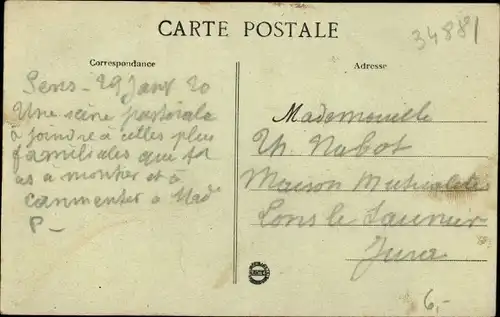 CARTE POSTALE
34881
Correspondance
Adresse
Sens - 29 Janv 20
Une scène pastorale
à joindre à celles plus
familiales que tu
as a montrer et à
commenter à Mad
P -
Mademoiselle
Th. Nabot
Maison Mutualité
Lons le Saunier
Jura
6,-